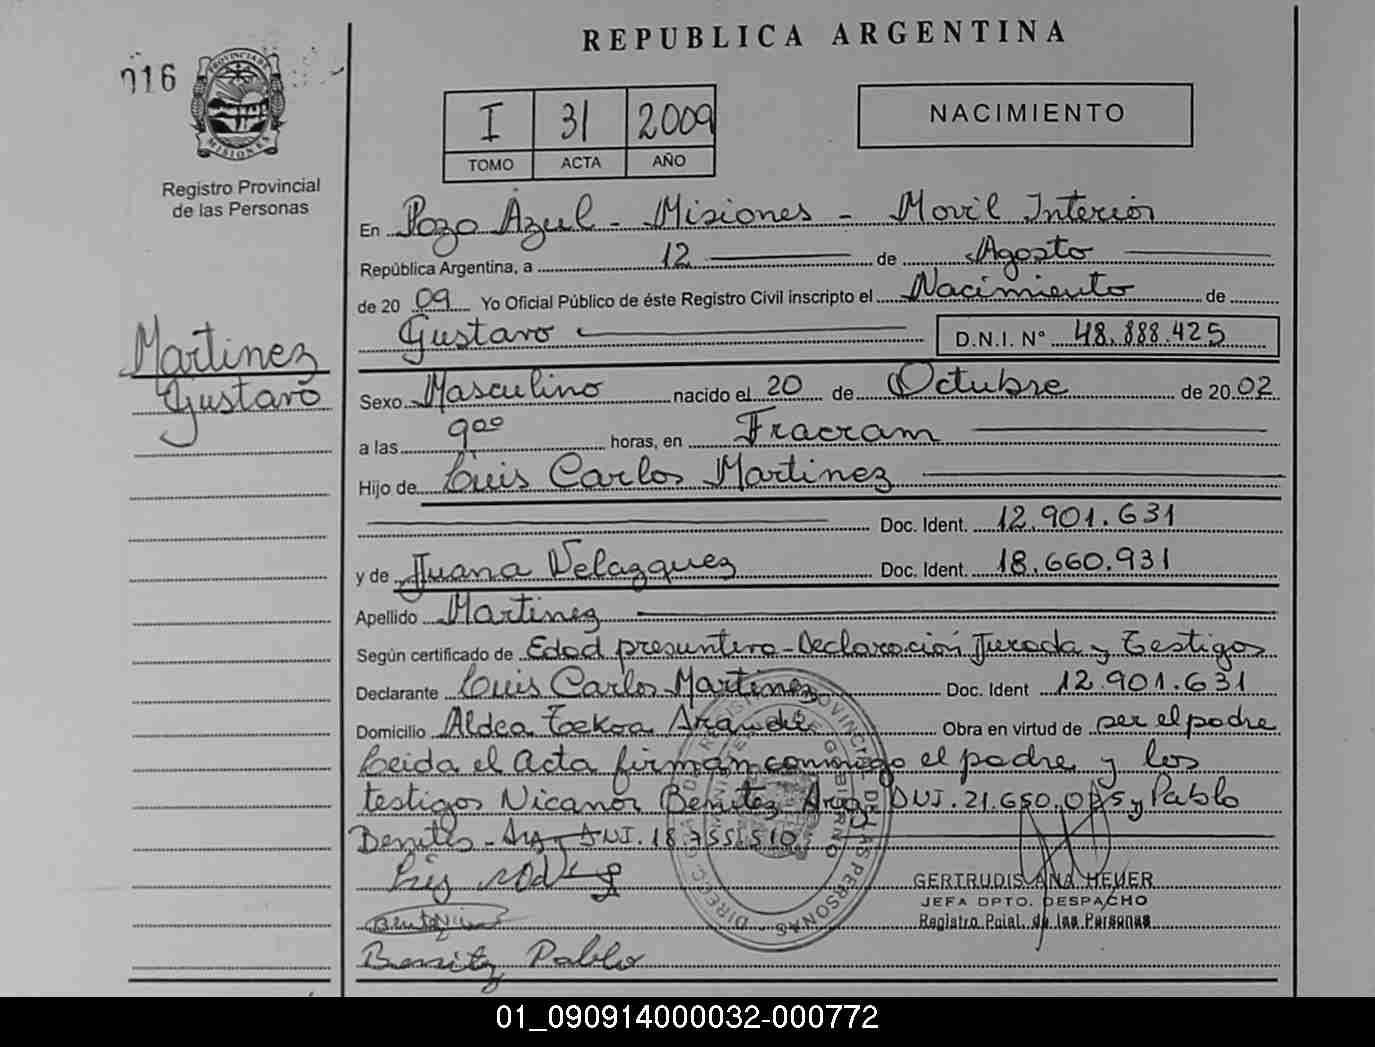 REPUBLICA ARGENTINA
016
PROVINCIA DE
MISIONES
Registro Provincial
de las Personas
I 31 2009
TOMO ACTA AÑO
NACIMIENTO
En Pozo Azul - Misiones - Movil Interior
República Argentina, a 12 de Agosto
de 20 09 Yo Oficial Público de éste Registro Civil inscripto el Nacimiento de
Gustavo D.N.I. Nº 48.888.425
Martinez
Gustavo
Sexo Masculino nacido el 20 de Octubre de 20 02
a las 9⁰⁰ horas, en Fracram
Hijo de Luis Carlos Martinez
Doc. Ident. 12.901.631
y de Juana Velazquez Doc. Ident. 18.660.931
Apellido Martinez
Según certificado de Edad presuntiva - Declaración Jurada y Testigos
Declarante Luis Carlos Martinez Doc. Ident 12.901.631
Domicilio Aldea Tekoa Arandu Obra en virtud de ser el padre
Leida el Acta firman conmigo el padre y los
testigos Nicanor Benitez Arg. DNI. 21.650.085 y Pablo
Benites - Arg DNI. 18.755.510
GERTRUDIS ANA HEUER
JEFA DPTO. DESPACHO
Registro Pcial. de las Personas
Benitez Pablo
01_090914000032-000772